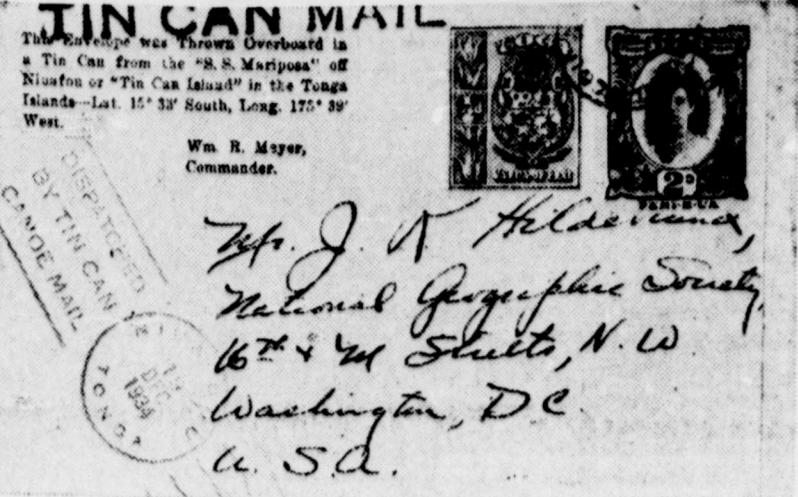 TIN CAN MAIL
This Envelope was Thrown Overboard in
a Tin Can from the "S. S. Mariposa" off
Niuafou or "Tin Can Island" in the Tonga
Islands—Lat. 15° 33' South, Long. 175° 39'
West.
Wm. R. Meyer,
Commander.
DISPATCHED
BY TIN CAN
CANOE MAIL
19
DEC
1934
TONGA
2D
Mr. J. R. Hildebrand,
National Geographic Society,
16th & M Streets, N.W.
Washington, D C
U. S. A.